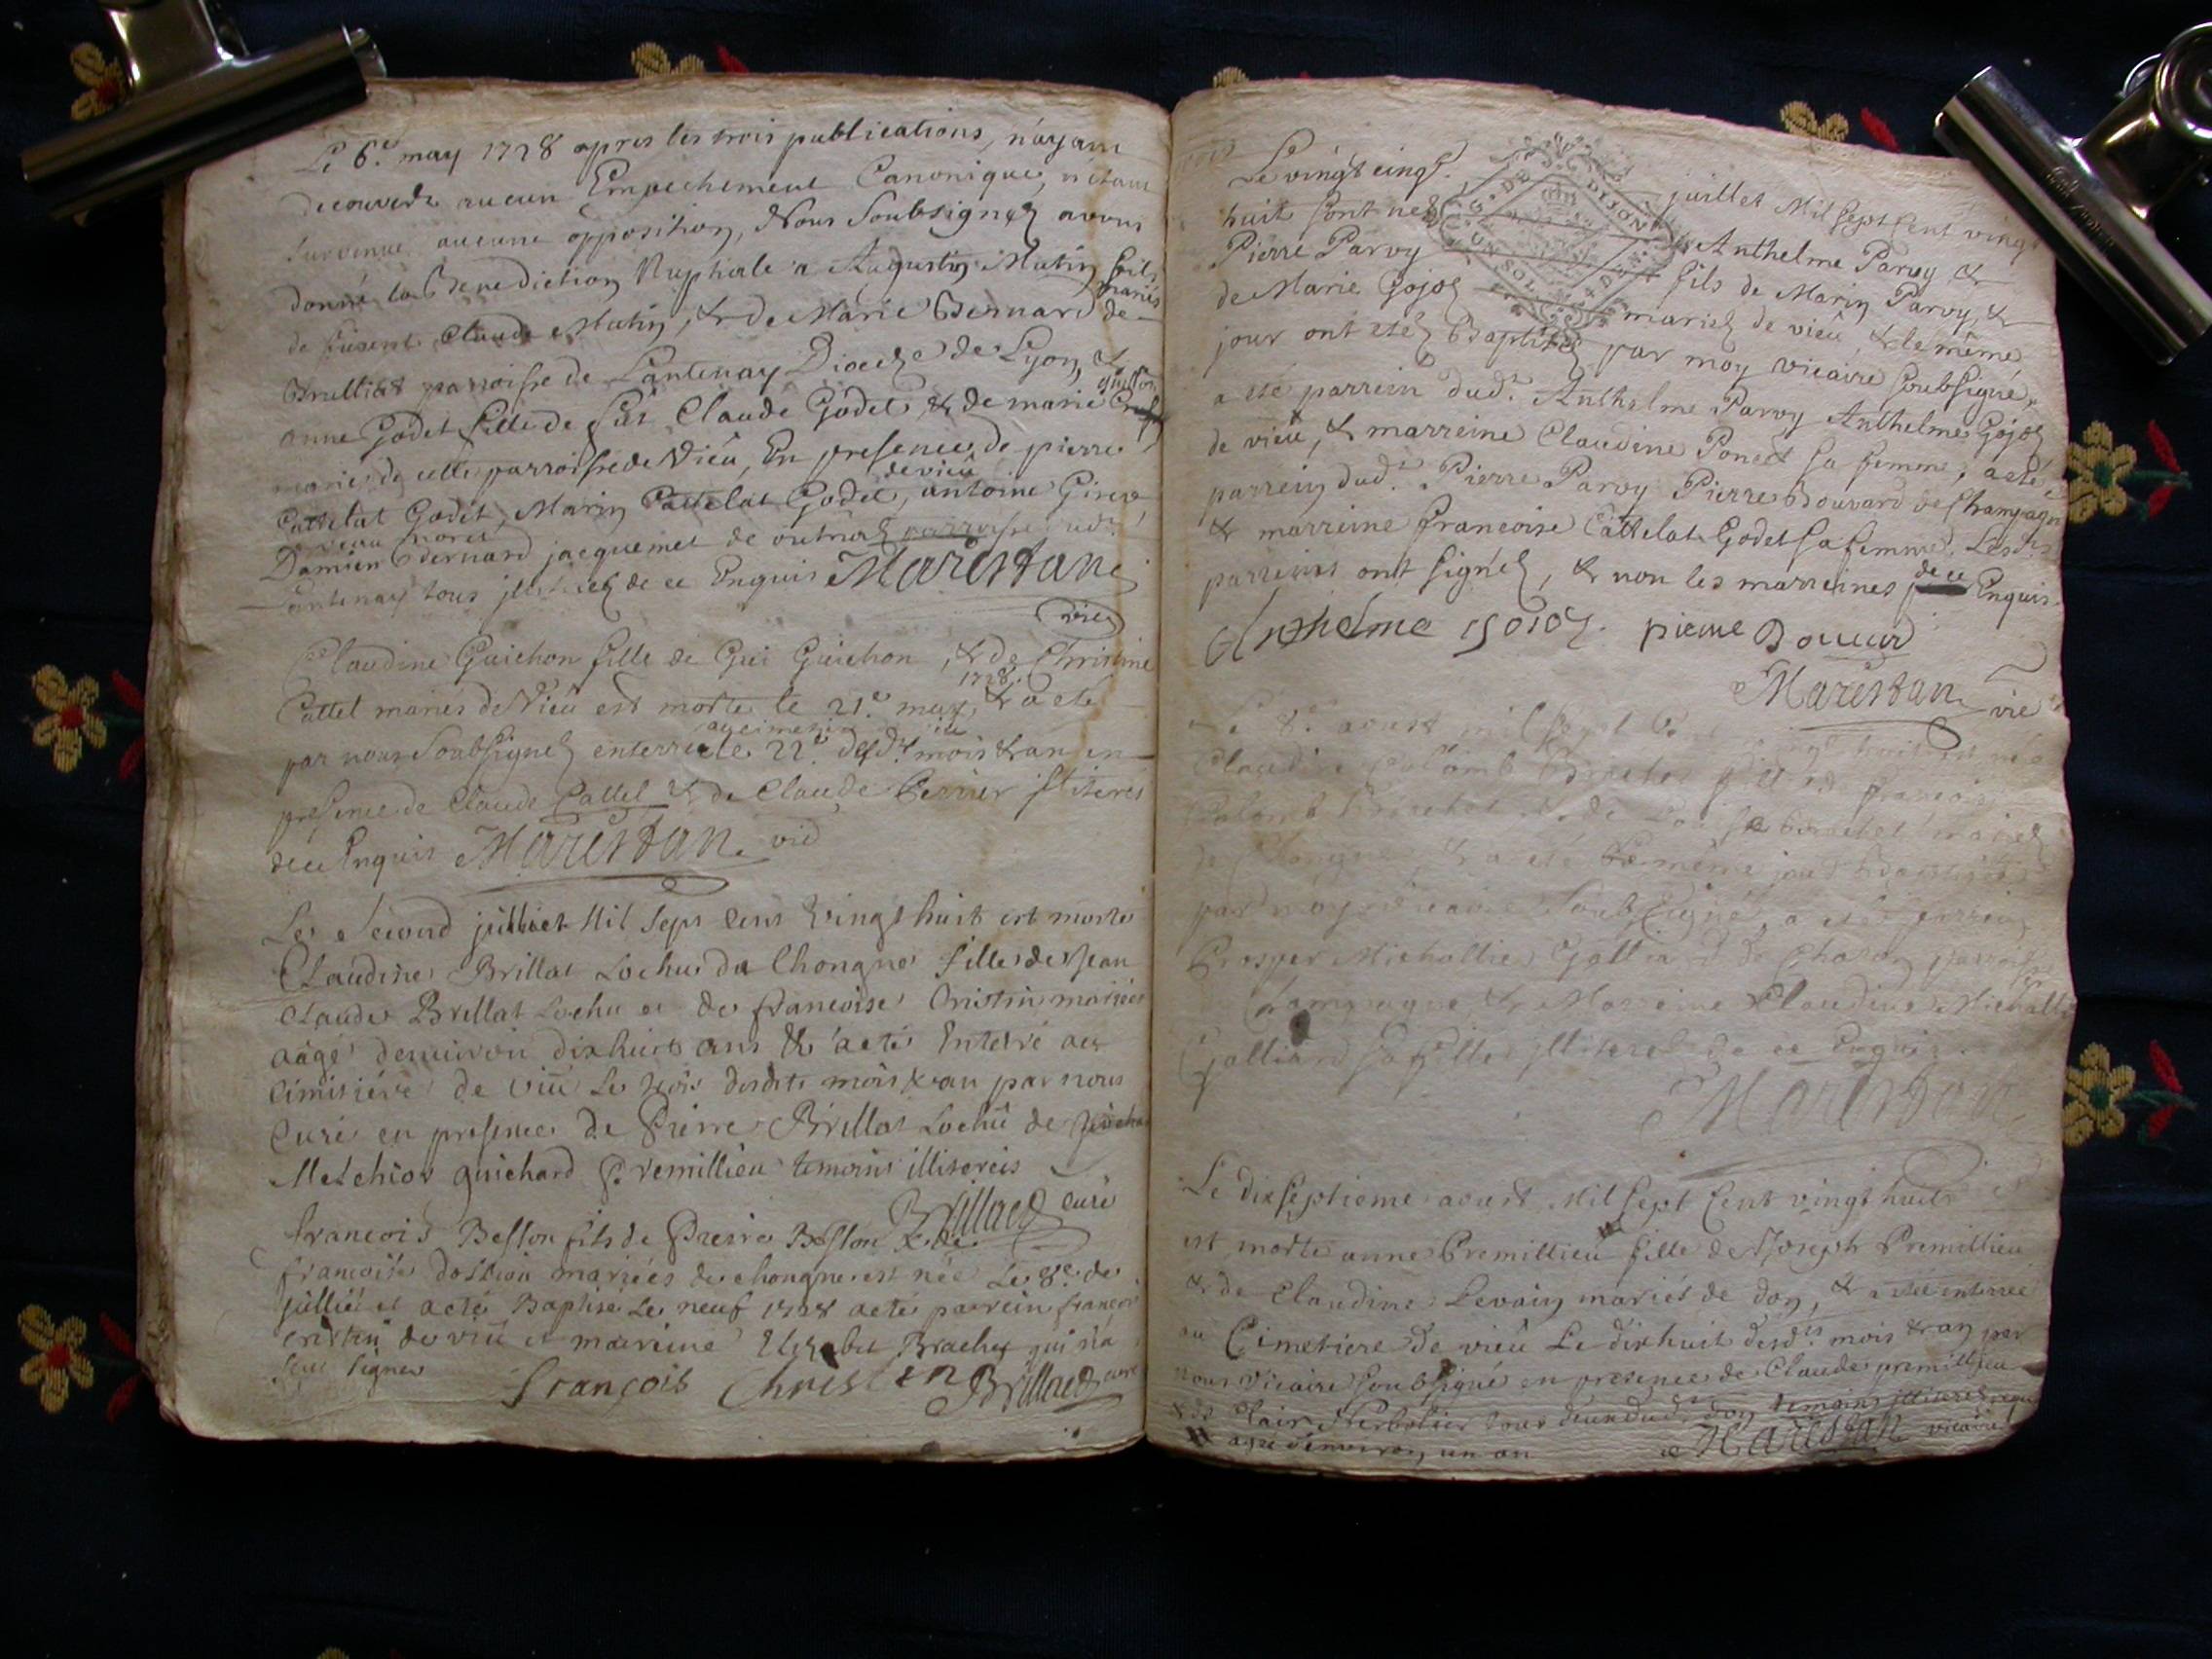 Le 6.e may 1728 apres les trois publications, n'ayant
decouvert aucun Empechement Canonique, n'etant
survenue aucune opposition, Nous Soubsignez avons
donné la Benediction Nuptiale a Augustin Mutin fils
de furent Claude Mutin, & de Marie Bernard mariés de
parroisse de Lantenay Diocese de Lyon, &
anne Godet fille de fût Claude Godet & de marie
mariés de cette parroisse de Vieu, En presence de pierre
Cattelat Godet, Marin Cattelat Godet de vieu, antoine
Damien Bernard jacquemet de parroisse dud.t
Lantenay tous de ce Enquis Marestan
vic
Claudine Guichon fille de Gui Guichon, & de Christine
Cattel mariés de Vieu est morte le 21.e may 1728. & a eté
par nous Soubsignez enterrée le 22.e desd.ts mois & an en
au cimetiere de vieu
presence de Claude Cattel & de Claude Perrier illiterés
de ce Enquis Marestan vic
Le second julliet Mil Sept Cent Vingt huit est morte
Claudine Brillat Lochu de Chongne fille de Jean
Claude Brillat Lochu et de francoise Cristin mariés
aagé denviron dix huit ans & a eté Enterré au
Cimitiére de viû Le trois desdits mois & an par nous
Curé en presence de Pierre Brillat Lochû de
Melchior guichard Premillieu temoins illiterés
Brillaud curé
francois Besson fils de Pierre Besson & de
francoise mariés de chongne est née Le 8.e de
jullié et a eté Baptisé Le neuf 1728 a eté parrein francois
cristin de viû et marreine Brachet qui n'a
seut signer
françois Christin Brillaud curé
Le vingt cinq. juillet Mil sept Cent vingt
huit sont nez Anthelme Parvy &
Pierre Parvy fils de Marin Parvy, &
de Marie Gojoz mariez de vieu, & le même
jour ont etéz Baptisez par moy vicaire soubsigné,
a eté parrein dud.t Anthelme Parvy Anthelme Gojoz
de vieu, & marreine Claudine Poncet sa femme, a eté
parrein dud.t Pierre Parvy Pierre Bouvard de Champagne
& marreine francoise Cattelat Godet sa femme, Lesd.ts
parreins ont signéz, & non les marreines de ce Enquis.
Anthelme gojoz. pierre Bouvard
Marestan vic
Le 8.e aoust mil sept Cent vingt huit est née
Claudine Colomb Brachet fille de francois
Colomb Brachet & de Brachet mariez
de Chongne, & a eté Le même jour Baptisée
par moy vicaire Soubsigné, a eté parrein
Prosper Michallier Galliard de parroisse
de Champagne & Marreine Claudine Michallier
Galliard sa fille illiterez de ce Enquis
Marestan
Le dix septieme aoust Mil sept Cent vingt huit
est morte anne Premillieu fille de Joseph Premillieu
& de Claudine Levain mariés de don, & a eté enterrée
au Cimetiere de vieu Le dix huit desd.ts mois & an par
nous vicaire soubsigné en presence de Claude premillieu
& de Clair tous deux dud.t don temoins illiterez requis
agée d'environ, un an Marestan vicaire